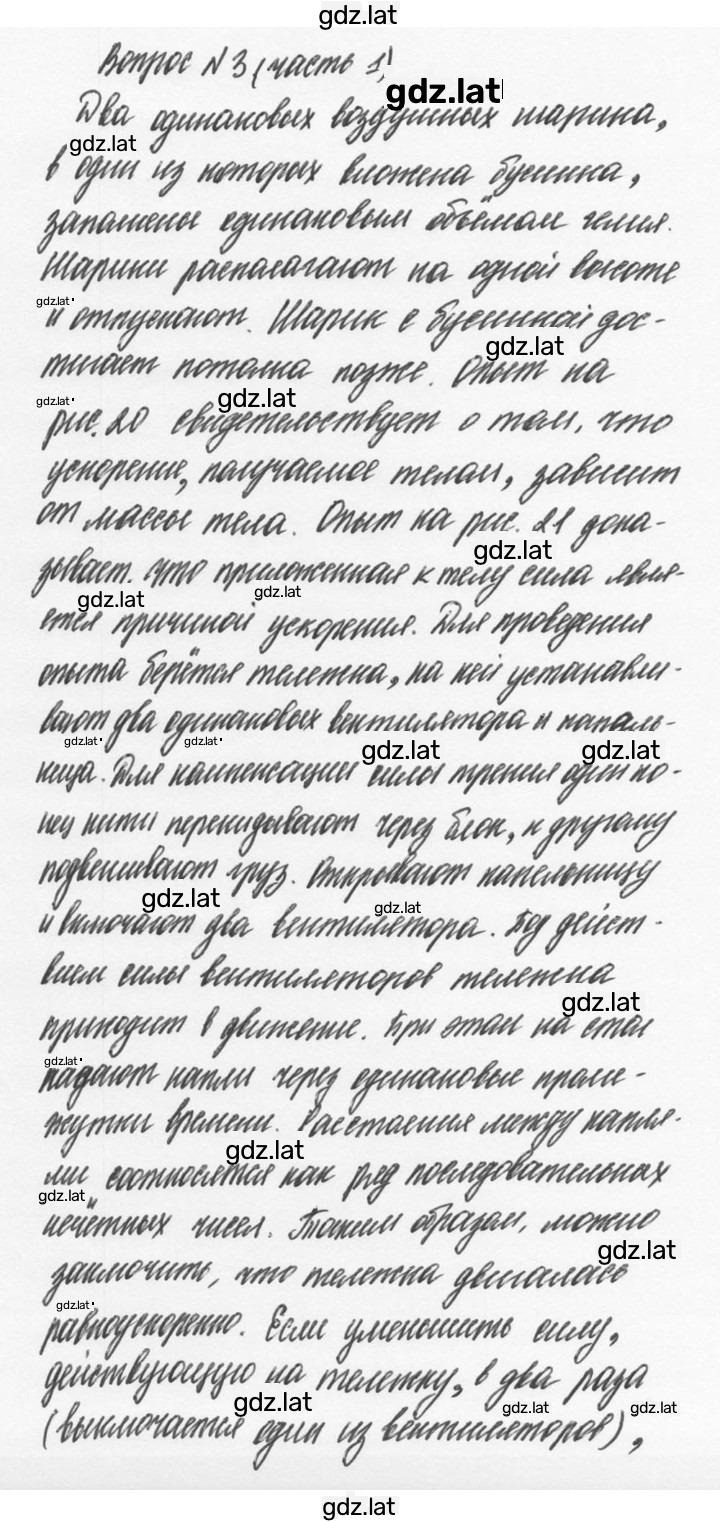 gdz.lat
Вопрос N 3 (часть 1)
gdz.lat
Два одинаковых воздушных шарика,
gdz.lat
в один из которых вложена бусинка,
заполнены одинаковым объёмом гелия.
Шарики располагают на одной высоте
gdz.lat
и отпускают. Шарик с бусинкой дос-
gdz.lat
тигает потолка позже. Опыт на
gdz.lat gdz.lat
рис. 20 свидетельствует о том, что
ускорение, получаемое телом, зависит
от массы тела. Опыт на рис. 21 дока-
gdz.lat
зывает. что приложенная к телу сила явля-
gdz.lat gdz.lat
ется причиной ускорения. Для проведения
опыта берётся тележка, на ней устанавли-
вают два одинаковых вентилятора и капель-
gdz.lat gdz.lat gdz.lat gdz.lat
ница. Для компенсации силы трения один ко-
нец нити перекидывают через блок, к другому
подвешивают груз. Открывают капельницу
gdz.lat gdz.lat
и включают два вентилятора. Под дейст-
вием силы вентиляторов тележка
gdz.lat
приходит в движение. При этом на стол
gdz.lat
падают капли через одинаковые проме-
жутки времени. Расстояния между капля-
gdz.lat
ми соотносятся как ряд последовательных
gdz.lat
нечётных чисел. Таким образом, можно
gdz.lat
заключить, что тележка двигалась
gdz.lat
равноускоренно. Если уменьшить силу,
действующую на тележку, в два раза
gdz.lat gdz.lat gdz.lat
(выключается один из вентиляторов),
gdz.lat